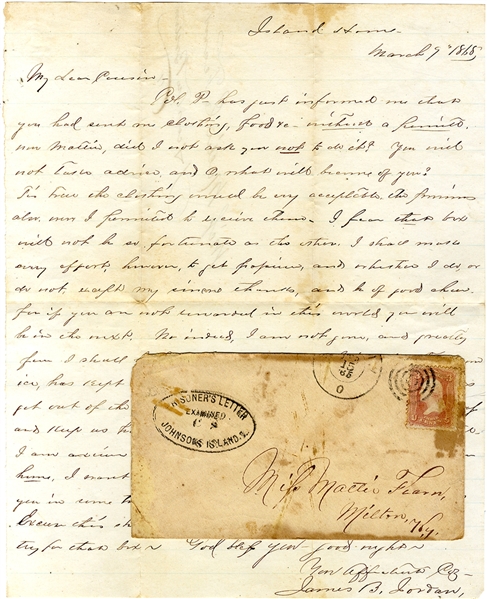 Island Home
March 9th 1865
My Dear Cousin
Col. P- has just informed me that
you had sent me clothing, food &c- without a permit.
now Mattie, did I not ask you not to do it? You will
not take advice, and O, what will become of you?
Tis true the clothing would be very acceptable, the provisions
also, were I permitted to receive them. I fear that box
will not be so fortunate as the other. I shall make
every effort, however, to get possession, and whether I do, or
do not, accept my sincere thanks, and be of good cheer
for if you are not rewarded in this world you will
be in the next. No indeed, I am not gone, and greatly
fear I shall
ice, has kept
get out of the
and keep us
I am
home, I want
you in some
Excuse this
try for that box God bless you good night
Your Affectionate Coz
James B. Jordan,
PRISONER'S LETTER
EXAMINED
JOHNSON'S ISLAND.
O
Miss Mattie Fearn,
Milton, Ky.